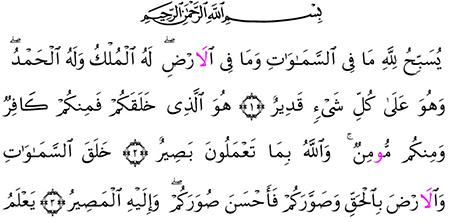 بِسْمِ اللَّهِ الرَّحْمَٰنِ الرَّحِيمِ
يُسَبِّحُ لِلَّهِ مَا فِى السَّمَـٰوَاتِ وَمَا فِى الَارْضِۖ لَهُ الْمُلْكُ وَلَهُ الْحَمْدُۖ
وَهُوَ عَلَىٰ كُلِّ شَىْءٍ قَدِيرٌ ﴿١﴾ هُوَ الَّذِى خَلَقَكُمْ فَمِنكُمْ كَافِرٌ
وَمِنكُم مُّومِنٌۚ وَاللَّهُ بِمَا تَعْمَلُونَ بَصِيرٌ ﴿٢﴾ خَلَقَ السَّمَـٰوَاتِ
وَالَارْضَ بِالْحَقِّ وَصَوَّرَكُمْ فَأَحْسَنَ صُوَرَكُمْۖ وَإِلَيْهِ الْمَصِيرُ ﴿٣﴾ يَعْلَمُ